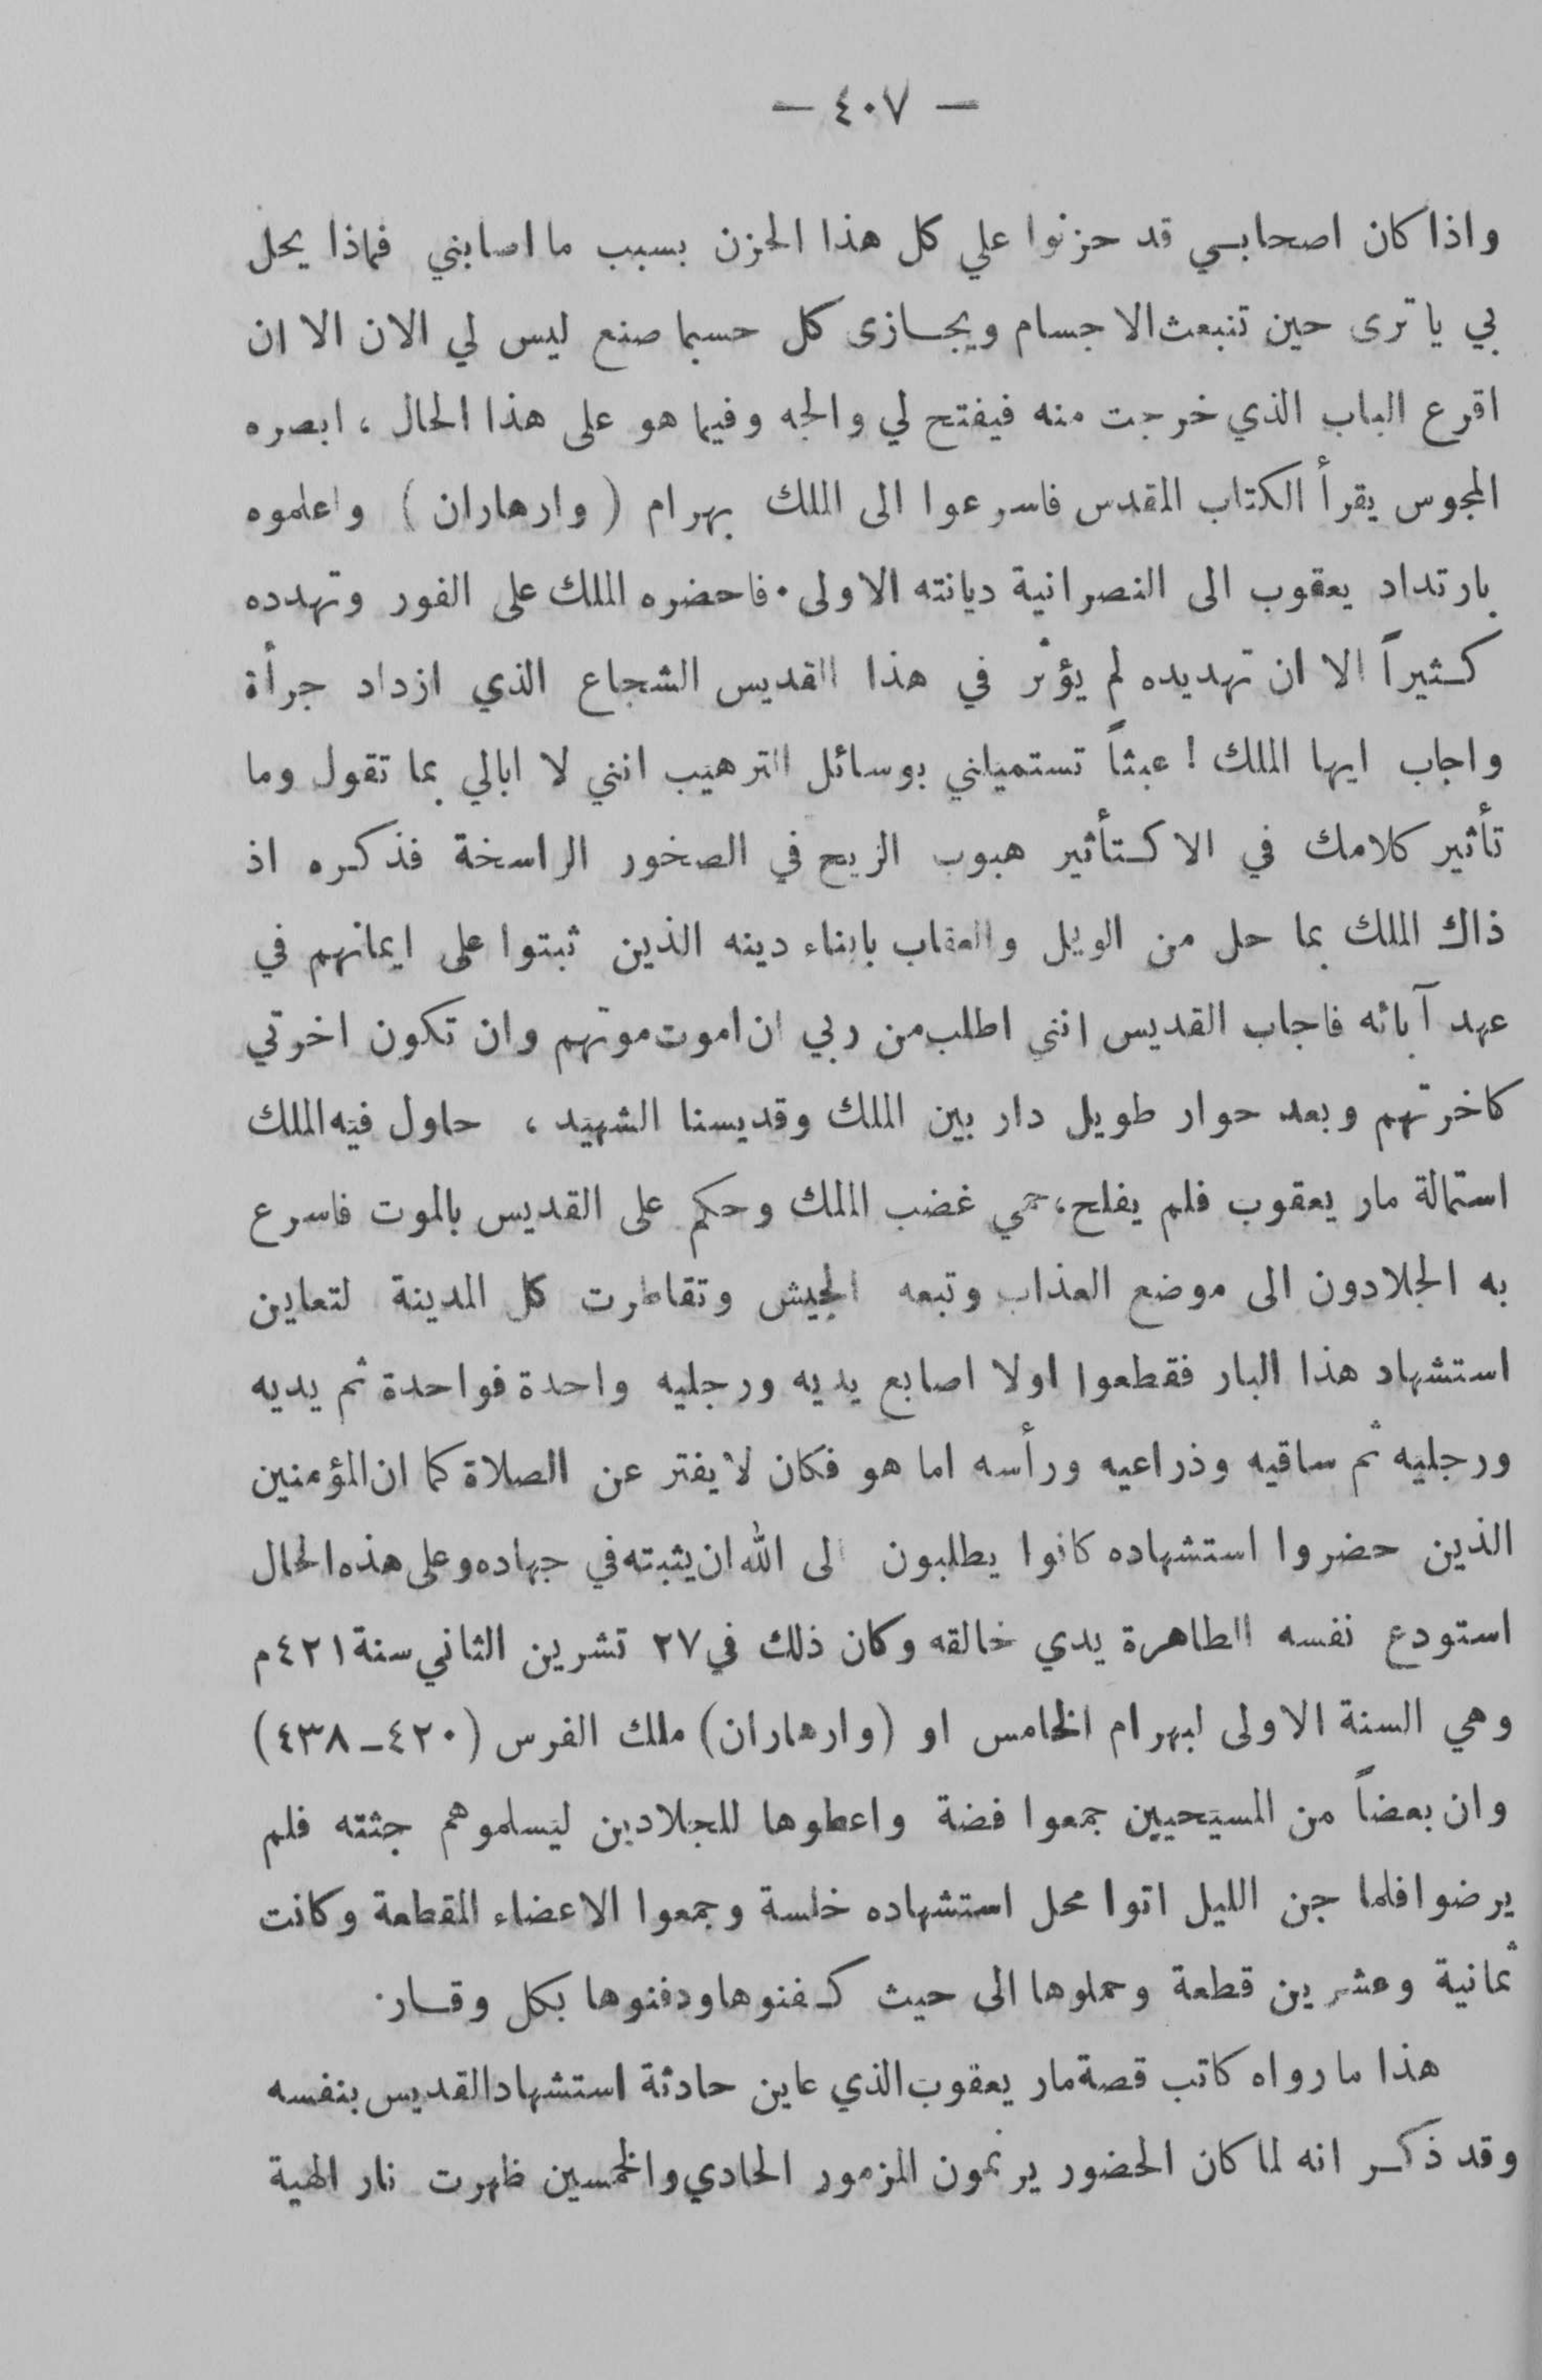 — ٤٠٧ —
واذا كان اصحابي قد حزنوا علي كل هذا الحزن بسبب ما اصابني فماذا يحل
بي يا ترى حين تنبعث الاجسام ويجازى كل حسبما صنع ليس لي الان الا ان
اقرع الباب الذي خرجت منه فيفتح لي والجه وفيما هو على هذا الحال ، ابصره
المجوس يقرأ الكتاب المقدس فاسرعوا الى الملك بهرام ( وارهاران ) واعلموه
بارتداد يعقوب الى النصرانية ديانته الاولى . فاحضره الملك على الفور وتهدده
كثيراً الا ان تهديده لم يؤثر في هذا القديس الشجاع الذي ازداد جرأة
واجاب ايها الملك ! عبثاً تستميلني بوسائل الترهيب انني لا ابالي بما تقول وما
تأثير كلامك في الا كتأثير هبوب الريح في الصخور الراسخة فذكره اذ
ذاك الملك بما حل من الويل والعقاب بابناء دينه الذين ثبتوا على ايمانهم في
عهد آبائه فاجاب القديس انني اطلب من ربي ان اموت موتهم وان تكون اخرتي
كاخرتهم وبعد حوار طويل دار بين الملك وقديسنا الشهيد ، حاول فيه الملك
استمالة مار يعقوب فلم يفلح ، حمي غضب الملك وحكم على القديس بالموت فاسرع
به الجلادون الى موضع العذاب وتبعه الجيش وتقاطرت كل المدينة لتعاين
استشهاد هذا البار فقطعوا اولا اصابع يديه ورجليه واحدة فواحدة ثم يديه
ورجليه ثم ساقيه وذراعيه ورأسه اما هو فكان لا يفتر عن الصلاة كما ان المؤمنين
الذين حضروا استشهاده كانوا يطلبون الى الله ان يثبته في جهاده وعلى هذه الحال
استودع نفسه الطاهرة يدي خالقه وكان ذلك في ٢٧ تشرين الثاني سنة ٤٢١ م
وهي السنة الاولى لبهرام الخامس او (وارهاران) ملك الفرس (٤٢٠ـ٤٣٨)
وان بعضاً من المسيحيين جمعوا فضة واعطوها للجلادين ليسلموهم جثته فلم
يرضوا فلما جن الليل اتوا محل استشهاده خلسة وجمعوا الاعضاء المقطعة وكانت
ثمانية وعشرين قطعة وحملوها الى حيث كفنوها ودفنوها بكل وقار .
هذا ما رواه كاتب قصة مار يعقوب الذي عاين حادثة استشهاد القديس بنفسه
وقد ذكر انه لما كان الحضور يرنمون المزمور الحادي والخمسين ظهرت نار الهية